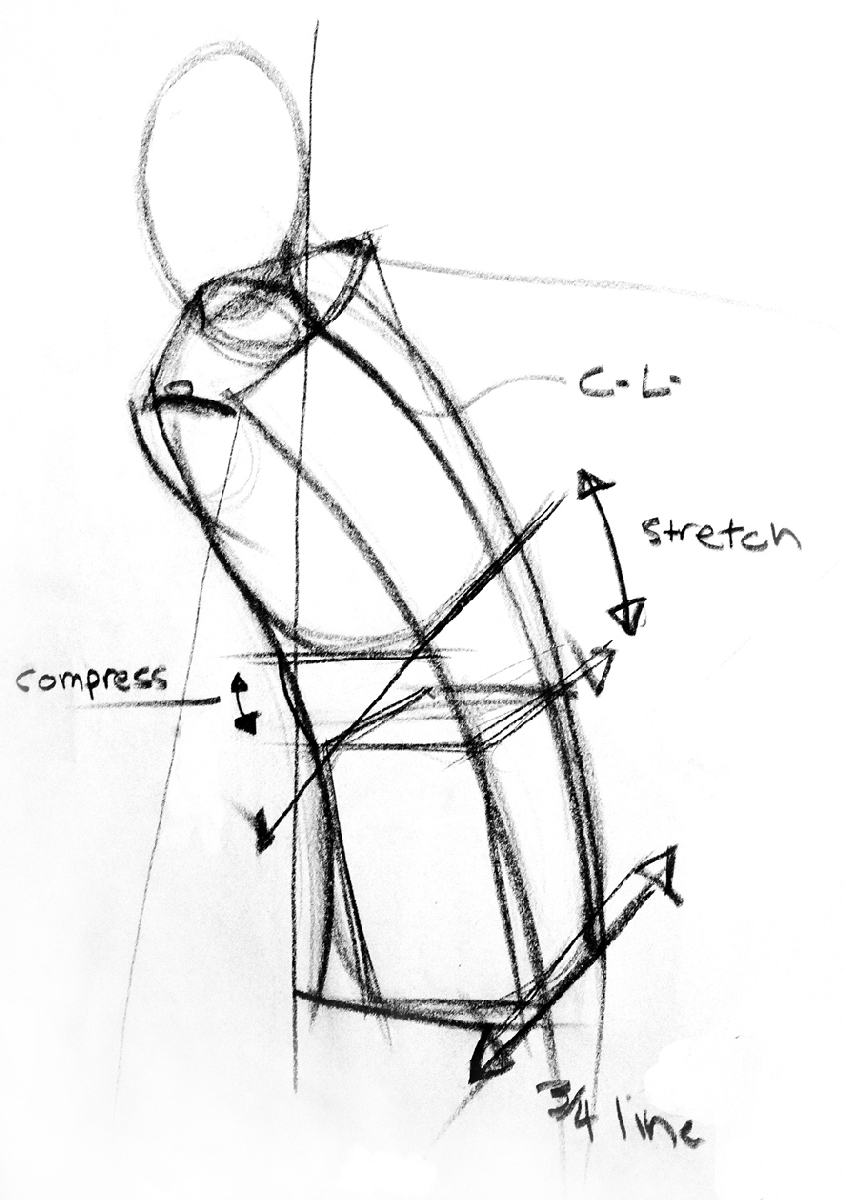 C.L.
stretch
compress
3/4 line